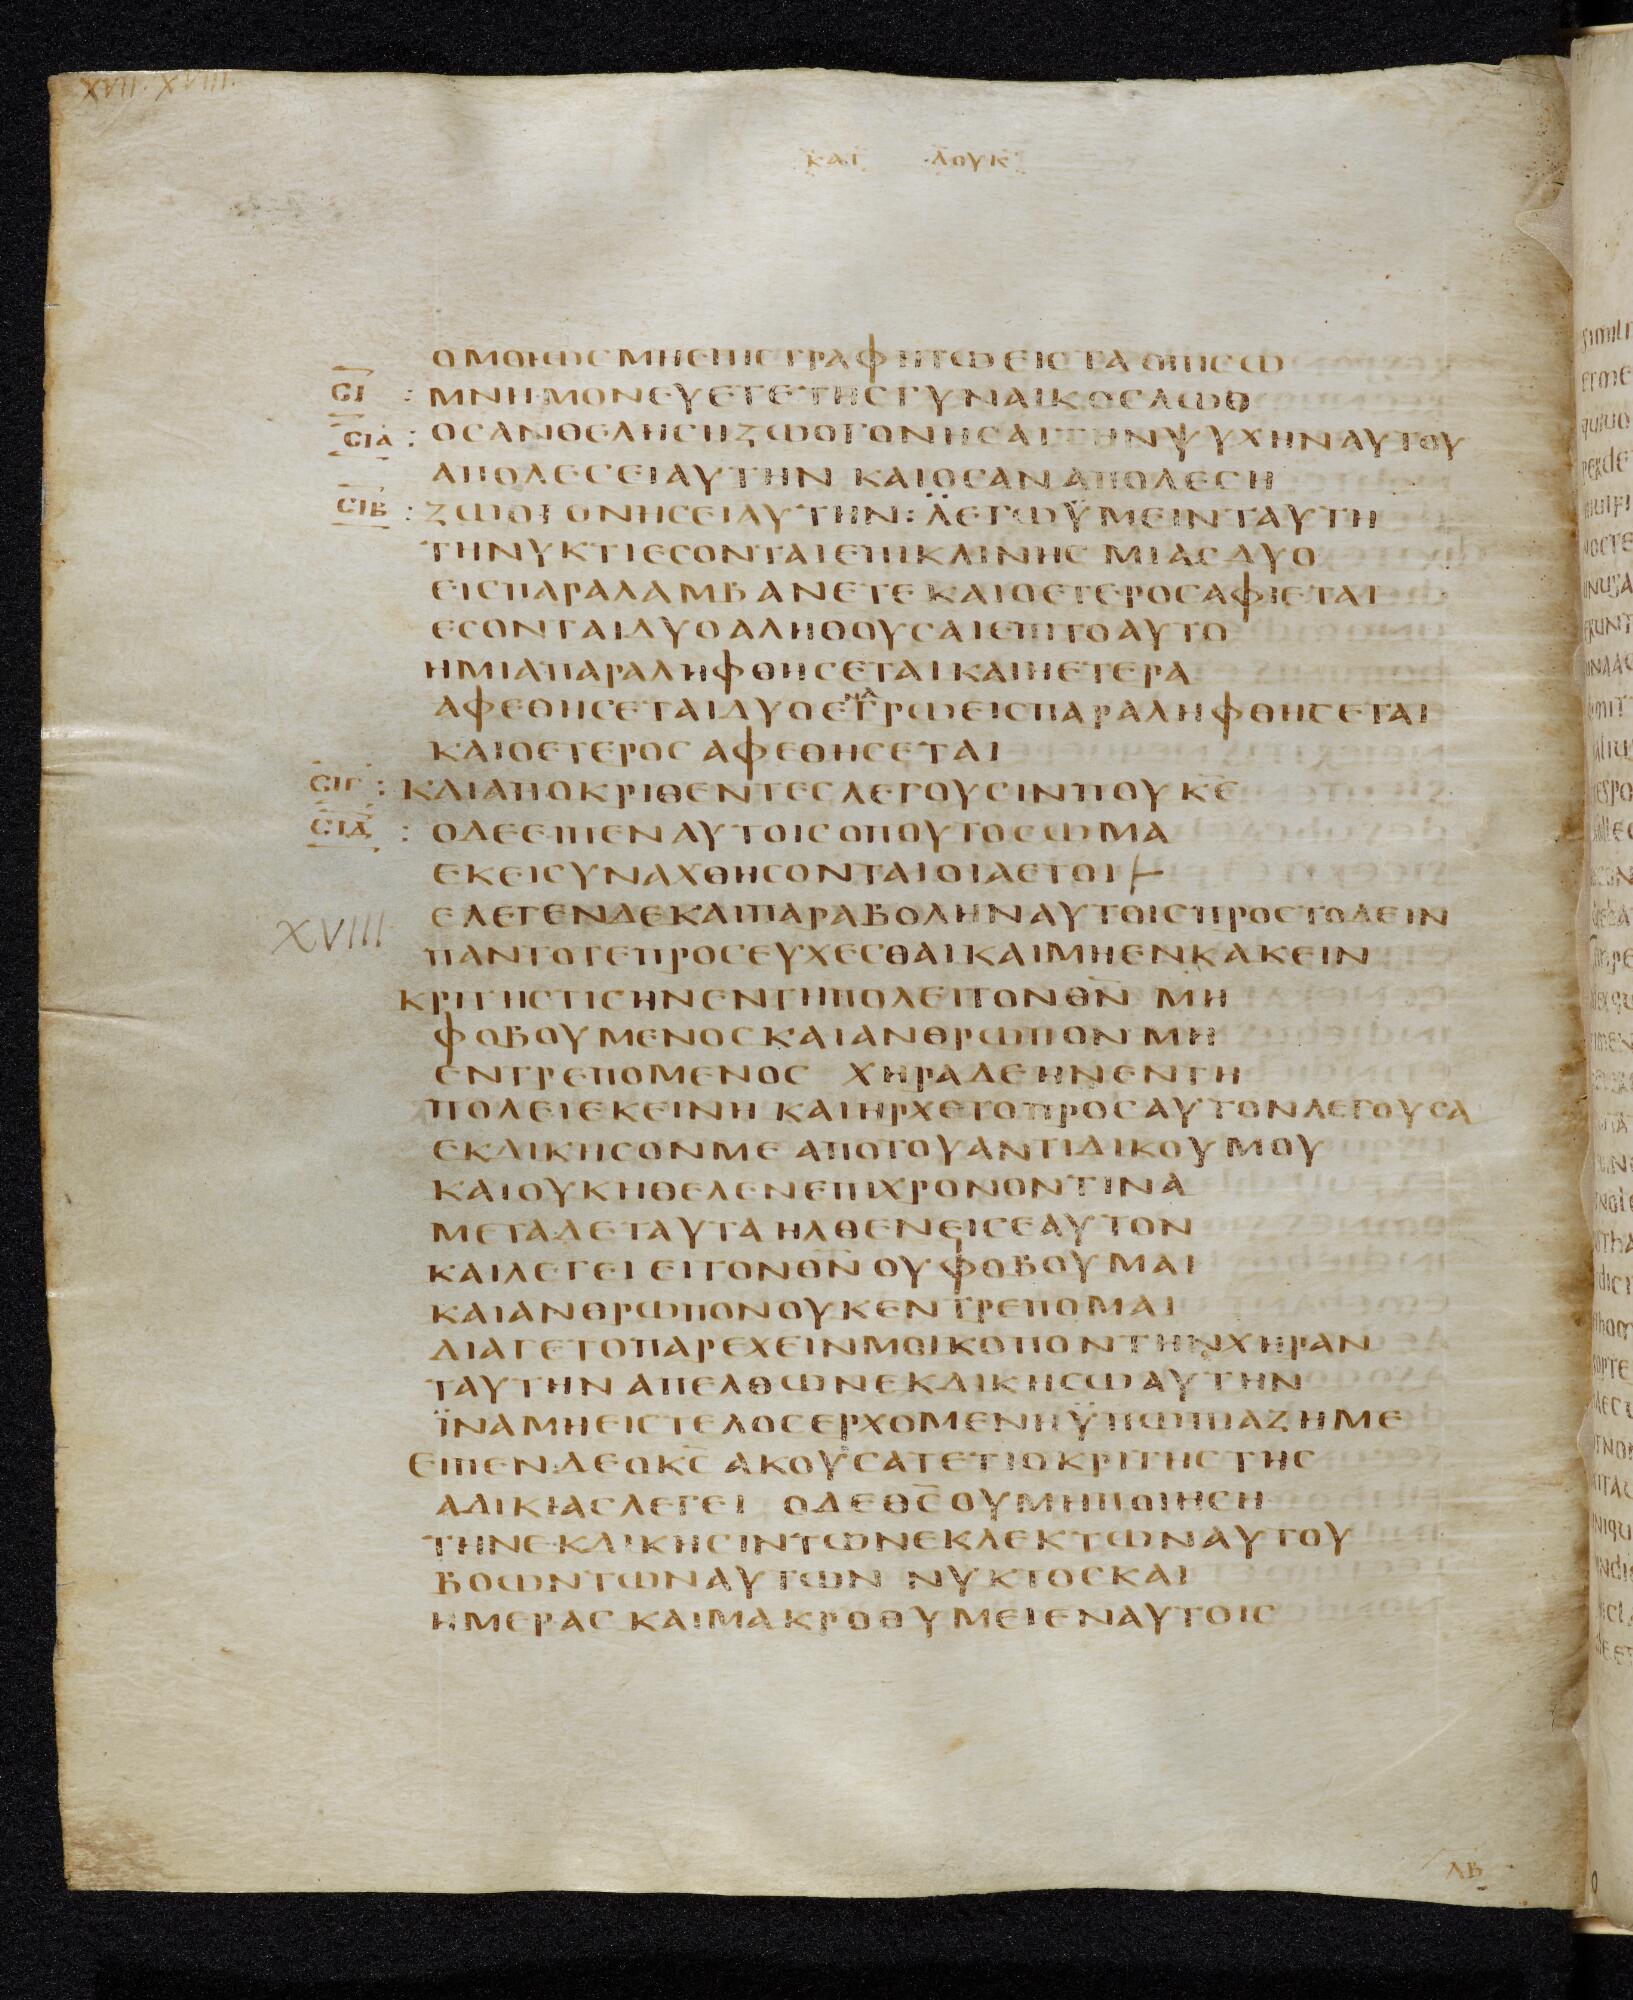 XVII. XVIII.
ΚΑΤ ΛΟΥΚ
ΟΜΟΙΩСΜΗΕΠΙСΤΡΑΦΗΤΩΕΙСΤΑΟΠΙСΩ
СΙ : ΜΝΗΜΟΝΕΥΕΤΕΤΗСΓΥΝΑΙΚΟСΛΩΘ
СΙΑ : ΟСΑΝΘΕΛΗСΗΖΩΟΓΟΝΗСΑΙΤΗΝΨΥΧΗΝΑΥΤΟΥ
ΑΠΟΛΕСΕΙΑΥΤΗΝ ΚΑΙΟСΑΝΑΠΟΛΕСΗ
СΙΒ : ΖΩΟΓΟΝΗСΕΙΑΥΤΗΝ: ΛΕΓΩΫΜΕΙΝΤΑΥΤΗ
ΤΗΝΥΚΤΙΕСΟΝΤΑΙΕΠΙΚΛΙΝΗС ΜΙΑСΔΥΟ
ΕΙСΠΑΡΑΛΑΜΒΑΝΕΤΕ ΚΑΙΟΕΤΕΡΟСΑΦΙΕΤΑΙ
ΕСΟΝΤΑΙΔΥΟΑΛΗΘΟΥСΑΙΕΠΙΤΟΑΥΤΟ
ΗΜΙΑΠΑΡΑΛΗΦΘΗСΕΤΑΙΚΑΙΗΕΤΕΡΑ
ΑΦΕΘΗСΕΤΑΙΔΥΟΕΓΡΩΕΙСΠΑΡΑΛΗΦΘΗСΕΤΑΙ
ΚΑΙΟΕΤΕΡΟС ΑΦΕΘΗСΕΤΑΙ
СΙΓ : ΚΑΙΑΠΟΚΡΙΘΕΝΤΕСΛΕΓΟΥСΙΝΠΟΥ Κ̅Ε̅
СΙΔ : ΟΔΕΕΙΠΕΝΑΥΤΟΙСΟΠΟΥΤΟСΩΜΑ
ΕΚΕΙСΥΝΑΧΘΗСΟΝΤΑΙΟΙΑΕΤΟΙ
XVIII ΕΛΕΓΕΝΔΕΚΑΙΠΑΡΑΒΟΛΗΝΑΥΤΟΙСΠΡΟСΤΟΔΕΙΝ
ΠΑΝΤΟΤΕΠΡΟСΕΥΧΕСΘΑΙΚΑΙΜΗΕΝΚΑΚΕΙΝ
ΚΡΙΤΗСΤΙСΗΝΕΝΤΗΠΟΛΕΙΤΟΝΘ̅Ν̅ ΜΗ
ΦΟΒΟΥΜΕΝΟСΚΑΙΑΝΘΡΩΠΟΝΜΗ
ΕΝΤΡΕΠΟΜΕΝΟС ΧΗΡΑΔΕΗΝΕΝΤΗ
ΠΟΛΕΙΕΚΕΙΝΗ ΚΑΙΗΡΧΕΤΟΠΡΟСΑΥΤΟΝΛΕΓΟΥСΑ
ΕΚΔΙΚΗСΟΝΜΕ ΑΠΟΤΟΥΑΝΤΙΔΙΚΟΥΜΟΥ
ΚΑΙΟΥΚΗΘΕΛΕΝΕΠΙΧΡΟΝΟΝΤΙΝΑ
ΜΕΤΑΔΕΤΑΥΤΑ ΗΛΘΕΝΕΙСΕΑΥΤΟΝ
ΚΑΙΛΕΓΕΙ ΕΙΤΟΝΘ̅Ν̅ ΟΥΦΟΒΟΥΜΑΙ
ΚΑΙΑΝΘΡΩΠΟΝΟΥΚΕΝΤΡΕΠΟΜΑΙ
ΔΙΑΓΕΤΟΠΑΡΕΧΕΙΝΜΟΙΚΟΠΟΝΤΗΝΧΗΡΑΝ
ΤΑΥΤΗΝ ΑΠΕΛΘΩΝΕΚΔΙΚΗСΩΑΥΤΗΝ
ΪΝΑΜΗΕΙСΤΕΛΟСΕΡΧΟΜΕΝΗΫΠΩΠΙΑΖΗΜΕ
ΕΙΠΕΝΔΕΟΚ̅С̅ ΑΚΟΥСΑΤΕΤΙΟΚΡΙΤΗСΤΗС
ΑΔΙΚΙΑСΛΕΓΕΙ ΟΔΕΘ̅С̅ΟΥΜΗΠΟΙΗСΗ
ΤΗΝΕΚΔΙΚΗСΙΝΤΩΝΕΚΛΕΚΤΩΝΑΥΤΟΥ
ΒΟΩΝΤΩΝΑΥΤΩΝ ΝΥΚΤΟСΚΑΙ
ΗΜΕΡΑС ΚΑΙΜΑΚΡΟΘΥΜΕΙΕΝΑΥΤΟΙС
ΛΒ